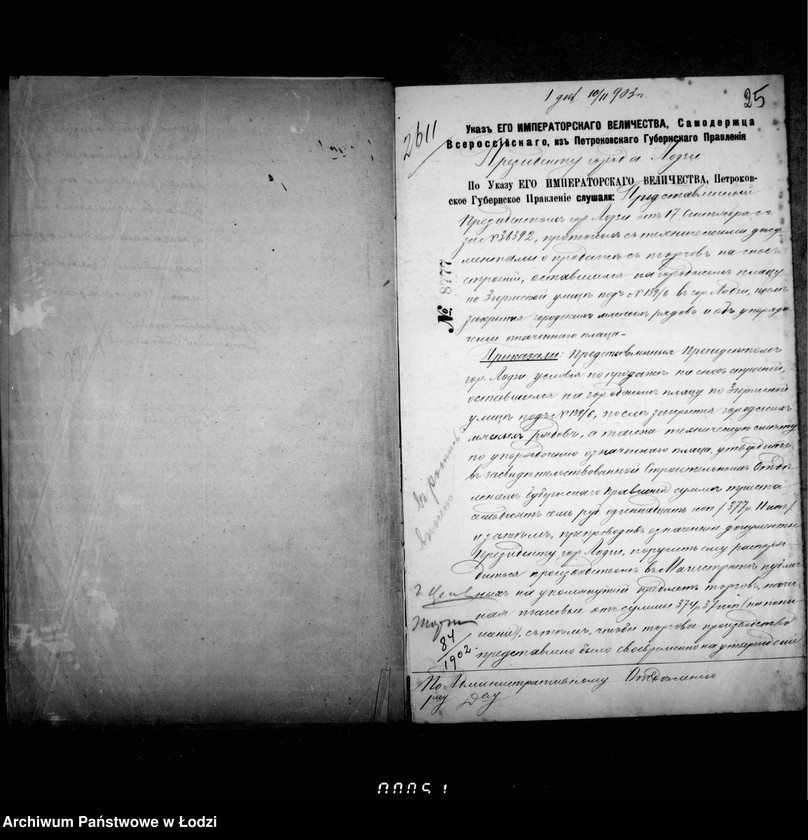 1 дек. 10/II 903 г.
25
2611
Указъ ЕГО ИМПЕРАТОРСКАГО ВЕЛИЧЕСТВА, Самодержца
Всероссійскаго, изъ Петроковскаго Губернскаго Правленія
Президенту города Лодзи
По Указу ЕГО ИМПЕРАТОРСКАГО ВЕЛИЧЕСТВА, Петроков-
ское Губернское Правленіе слушали: Представленный
Президентомъ гор. Лодзи отъ 17 Сентября с. г.
за № 36392, протоколъ съ техническими доку-
ментами о продажѣ съ торговъ на сносъ
строеній, оставшихся на городскомъ плацу
по Згержской улицѣ подъ № 139/6 въ гор. Лодзи, послѣ
закрытія городскихъ мясныхъ рядовъ и объ упорядо-
ченіи означеннаго плаца.
№ 8777
Приказали: Представленныя Президентомъ
гор. Лодзи условія по продажѣ на сносъ строеній,
оставшихся на городскомъ плацу по Згержской
улицѣ подъ № 139/6, послѣ закрытія городскихъ
мясныхъ рядовъ, а также техническую смѣту
по упорядоченію означеннаго плаца, утвердить,
въ засвидѣтельствованной Строительнымъ Отдѣ-
леніемъ Губернскаго Правленія суммѣ триста
семьдесятъ семь руб. одиннадцать коп. /377 р. 11 коп./
и затѣмъ, препроводивъ означенные документы
Президенту гор. Лодзи, поручить ему распоря-
диться производствомъ въ Магистратѣ публич-
ныхъ на упомянутый предметъ торговъ, начи-
ная таковые отъ суммы 374 р. 37 коп. (на пони-
женіе), съ тѣмъ, чтобы торговое производство
представлено было своевременно на утвержденіе
84/1902.
По Административному Отдѣленію